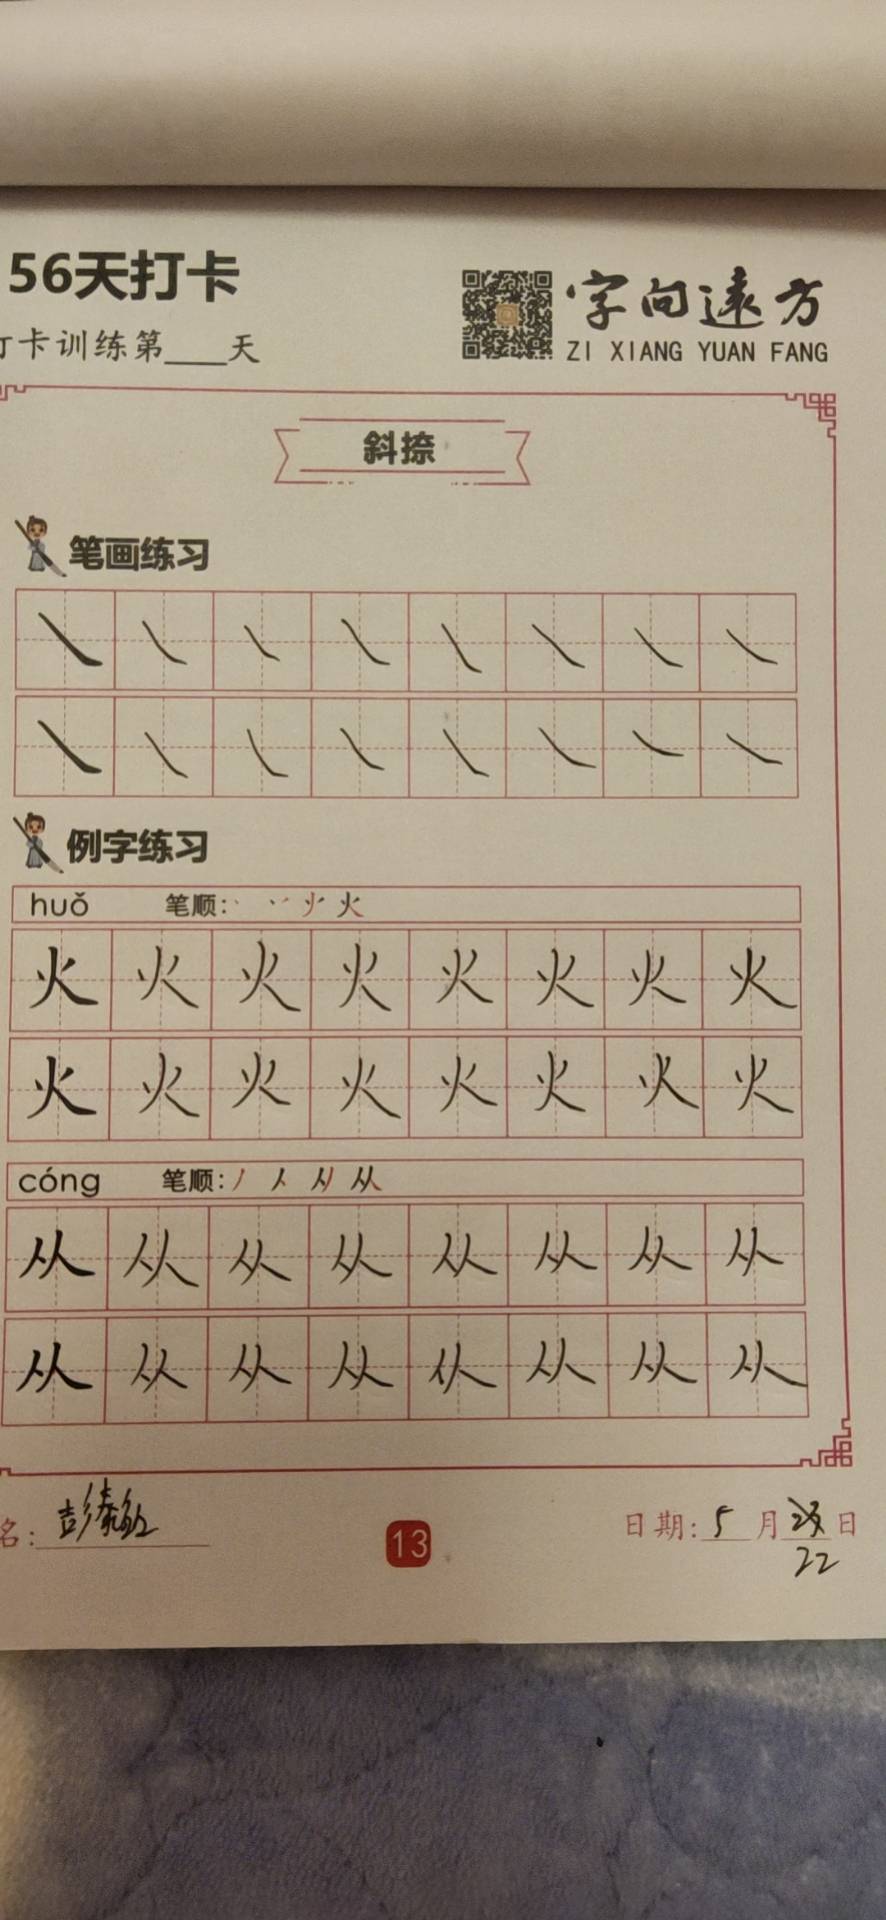 56天打卡
打卡训练第____天
字向遠方
ZI XIANG YUAN FANG
斜捺
笔画练习
㇏ ㇏ ㇏ ㇏ ㇏ ㇏ ㇏ ㇏
㇏ ㇏ ㇏ ㇏ ㇏ ㇏ ㇏ ㇏
例字练习
huǒ 笔顺: 火
火 火 火 火 火 火 火 火
火 火 火 火 火 火 火 火
cóng 笔顺: 丿 人 从
从 从 从 从 从 从 从 从
从 从 从 从 从 从 从 从
名: 彭
13
日期: 5 月 22 日